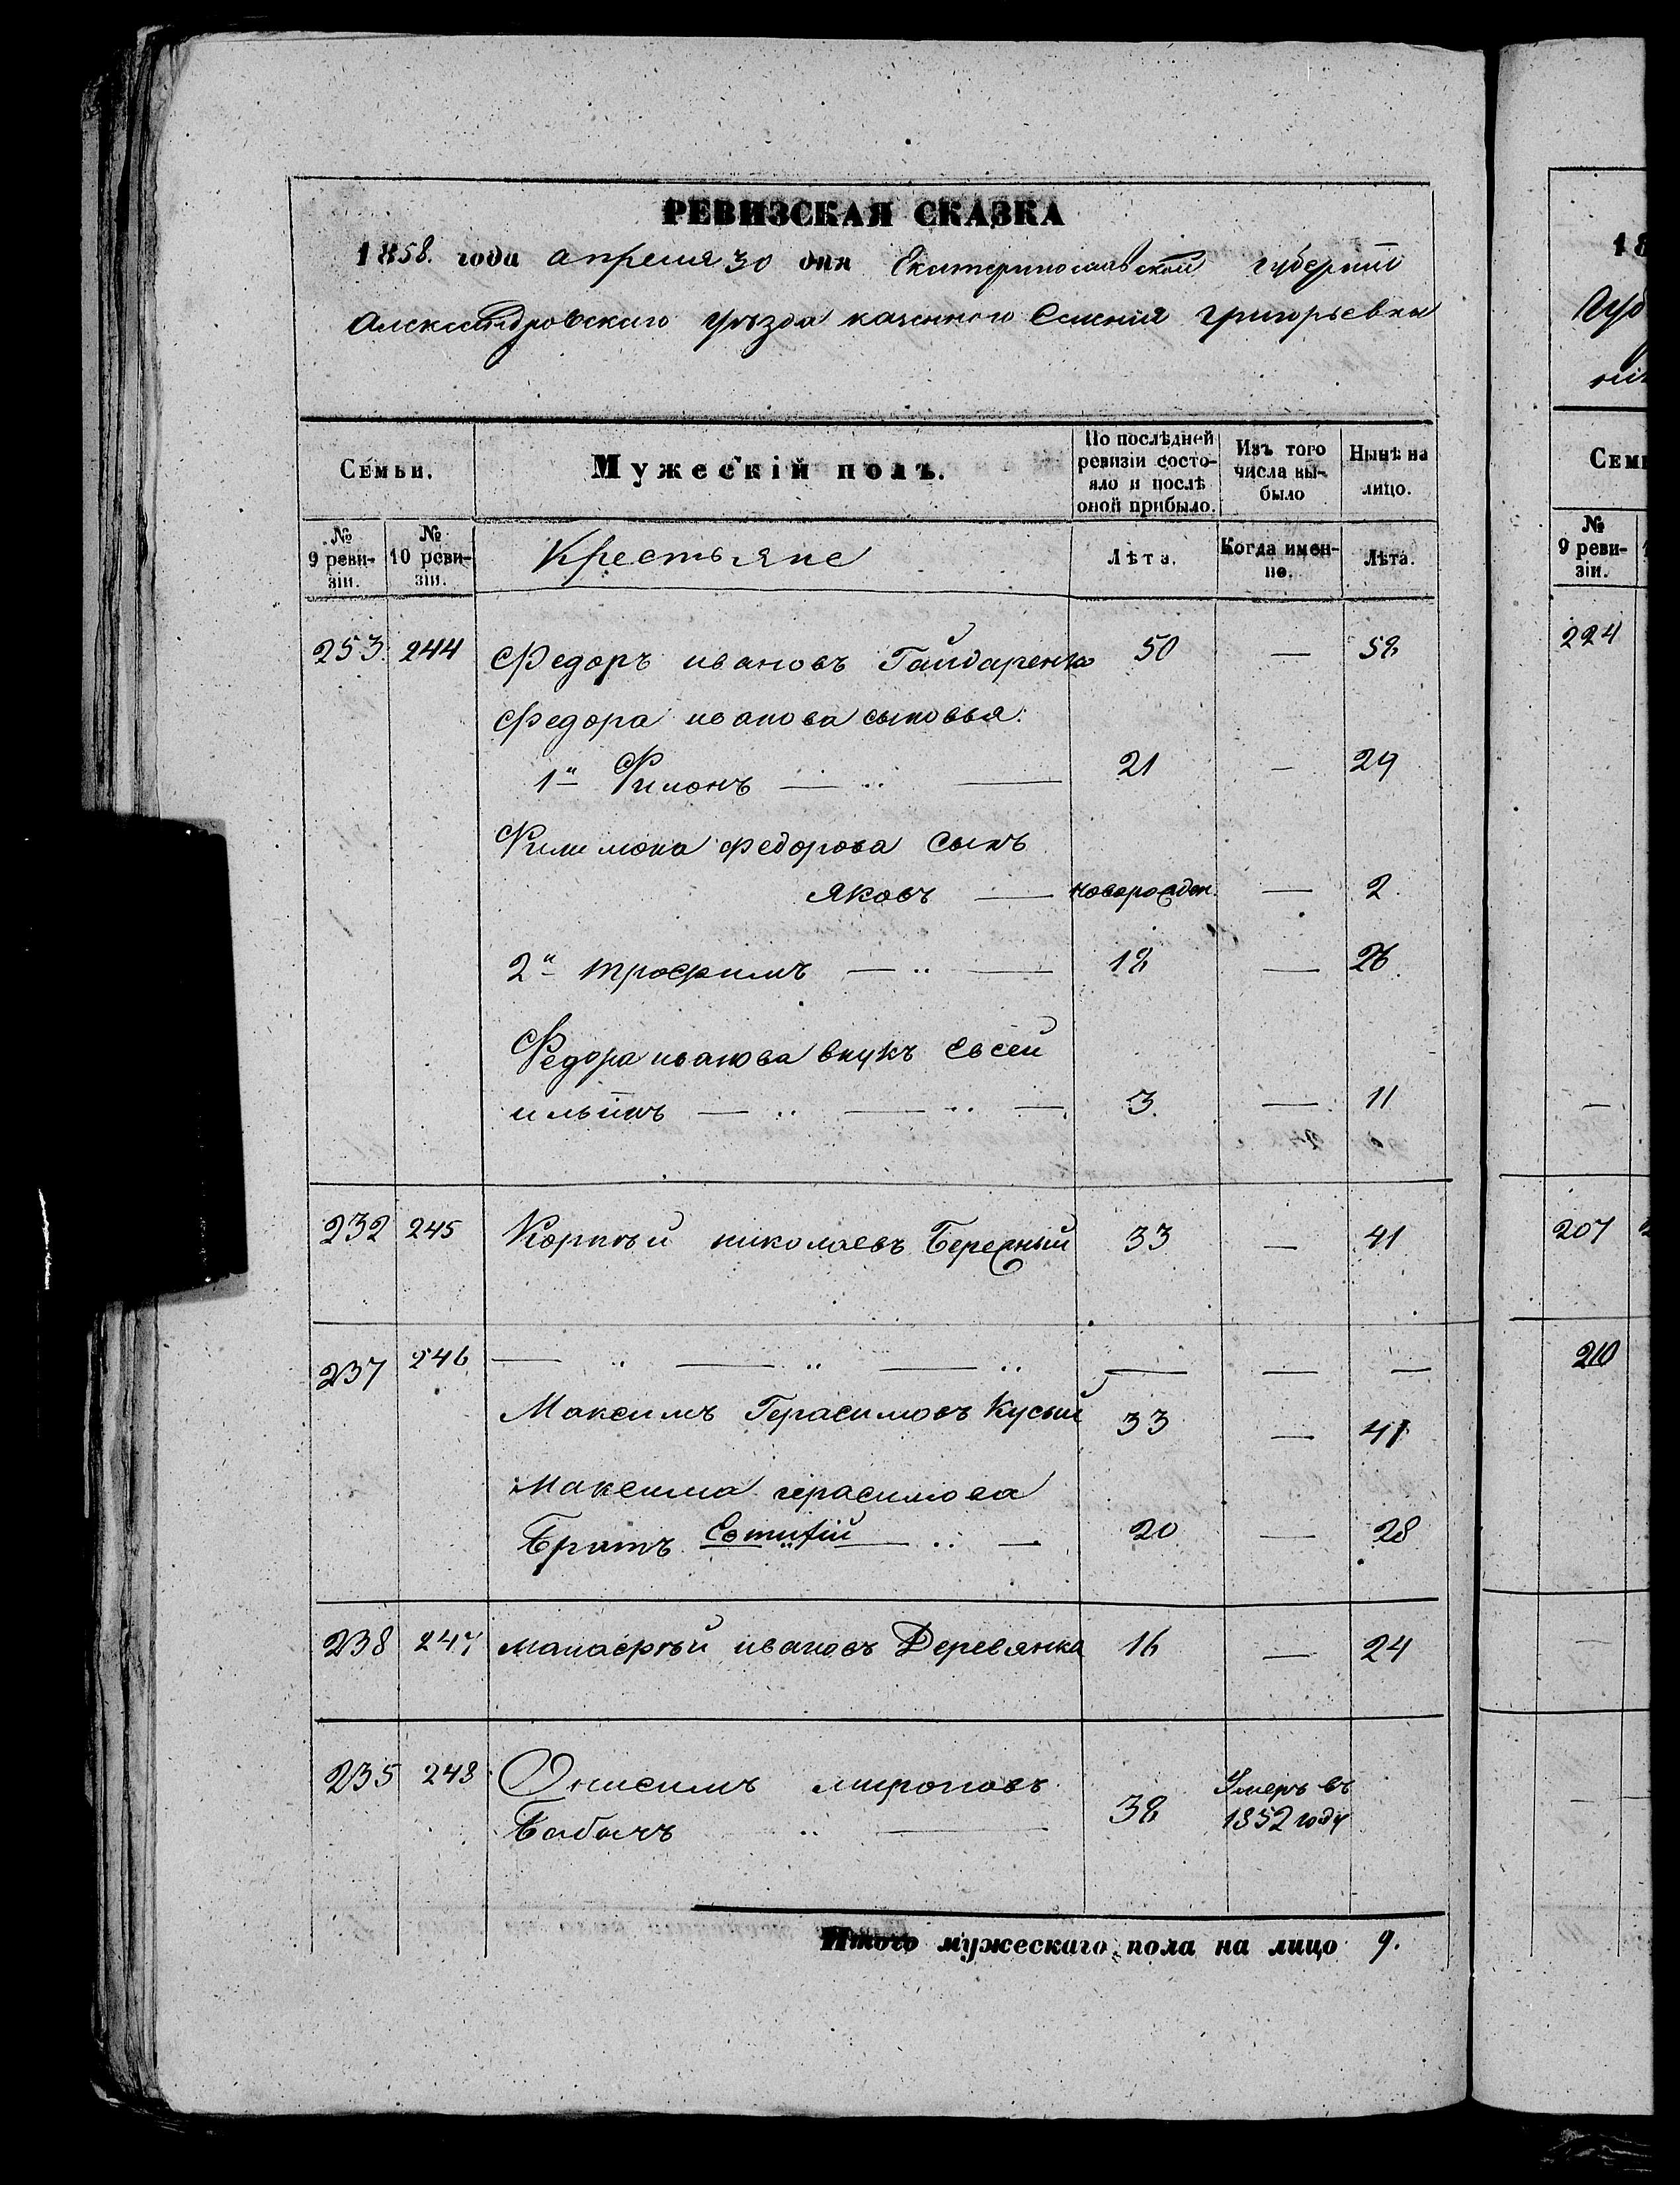 РЕВИЗСКАЯ СКАЗКА
1858. года апреля 30 дня Екатеринославской губернии
Александровского уѣзда казенного Селенія Григорьевки
Семьи. Мужескій полъ. По послѣдней ревизіи состояло и послѣ оной прибыло. Изъ того числа выбыло Нынѣ на лицо.
№ 9 ревизіи. № 10 ревизіи. Крестьяне Лѣта. Когда именно. Лѣта.
253. 244 Федоръ ивановъ Гайдаренко 50 — 58
Федора иванова сыновья:
1й Филонъ — 21 — 29
Филимона федорова сынъ
Яковъ — новорожден. — 2.
2й трофимъ — 18 — 26.
Федора иванова внукъ Евсей
ильинъ — 3. — 11
232 245 Корнѣй николаевъ Бережный 33 — 41
237 246 — — — — — —
Максимъ Герасимовъ Кусый 33 — 41
Максима герасимова
Братъ Евтифій — 20 — 28
238 247 манасфѣй ивановъ Деревянка 16 — 24
235 248 Онисимъ мироновъ
Бабачъ — 38 Умеръ въ 1852 году
Итого мужескаго пола на лицо 9.
18
Губ
Семь
№ 9 ревизіи.
224
207
210